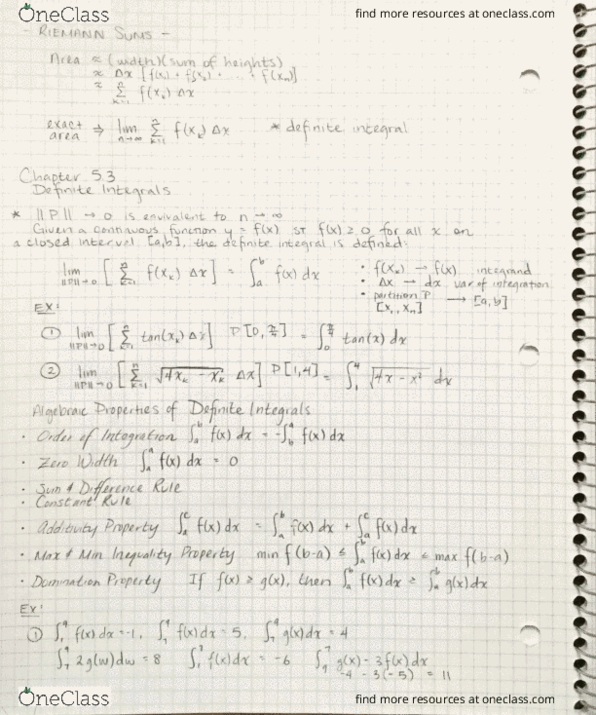 OneClass
find more resources at oneclass.com
- RIEMANN SUMS -
Area ≈ (width)(sum of heights)
≈ Δx [f(x₁) + f(x₂) + ... + f(xₙ)]
≈ Σ f(xₖ) Δx
exact area ⇒ lim n→∞ Σ k=1 n f(xₖ) Δx * definite integral
Chapter 5.3
Definite Integrals
* ||P|| → 0 is equivalent to n → ∞
Given a continuous function y = f(x) ST f(x) ≥ 0 for all x on
a closed interval [a,b], the definite integral is defined:
lim ||P||→0 [Σ k=1 n f(xₖ) Δx] = ∫ₐᵇ f(x) dx
• f(xₖ) → f(x) integrand
• Δx → dx var of integration
• partition P → [a,b]
[x₁, xₙ]
EX:
① lim ||P||→0 [Σ k=1 n tan(xₖ) Δx] P[0, π/4] = ∫₀^(π/4) tan(x) dx
② lim ||P||→0 [Σ k=1 n √(4xₖ - xₖ²) Δx] P[1,4] = ∫₁⁴ √(4x - x²) dx
Algebraic Properties of Definite Integrals
• Order of Integration ∫ₐᵇ f(x) dx = -∫_b^a f(x) dx
• Zero Width ∫_a^a f(x) dx = 0
• Sum & Difference Rule
• Constant Rule
• Additivity Property ∫_a^c f(x) dx = ∫_a^b f(x) dx + ∫_a^c f(x) dx
• Max & Min Inequality Property min f (b-a) ≤ ∫_a^b f(x) dx ≤ max f(b-a)
• Domination Property If f(x) ≥ g(x), then ∫_a^b f(x) dx ≥ ∫_a^b g(x) dx
EX:
① f(x) dx = -1, f(x) dx = 5, g(x) dx = 4
2g(w) dw = 8 f(x) dx = -6 g(x) - 3f(x) dx
-4 - 3(-5) = 11
OneClass
find more resources at oneclass.com